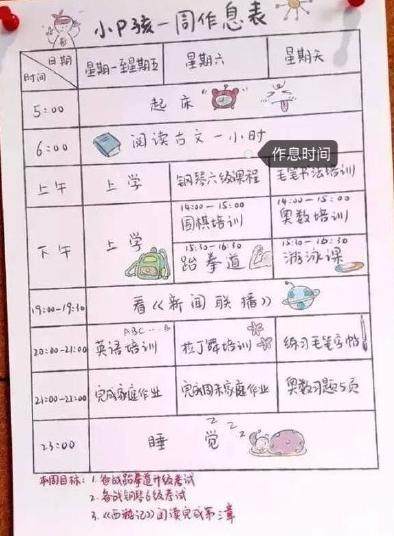 小P孩一周作息表
日期
时间
星期一至星期五 星期六 星期天
5:00 起床
6:00 阅读古文一小时
作息时间
上午 上学 钢琴六级课程 毛笔书法培训
下午 上学
14:00-15:00 14:00-15:00
围棋培训 奥数培训
15:30-16:30 15:30-16:30
跆拳道 游泳课
19:00-19:30 看《新闻联播》
ABC
20:00-21:00 英语培训 拉丁舞培训 练习毛笔字帖
21:00-22:00 完成家庭作业 完成周末家庭作业 奥数习题5页
23:00 睡觉 zzz
本周目标: 1. 备战跆拳道升级考试
2. 备战钢琴6级考试
3.《西游记》阅读完成第三章